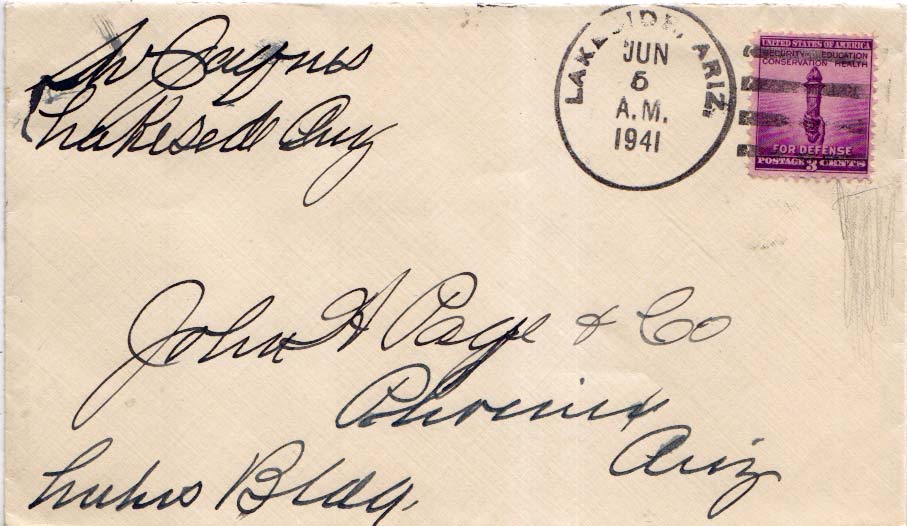 Lakeside Ariz
LAKESIDE, ARIZ.
JUN
5
A.M.
1941
UNITED STATES OF AMERICA
SECURITY EDUCATION
CONSERVATION HEALTH
FOR DEFENSE
POSTAGE 3 CENTS
John H Page & Co
Phoenix
Ariz
Luhrs Bldg.